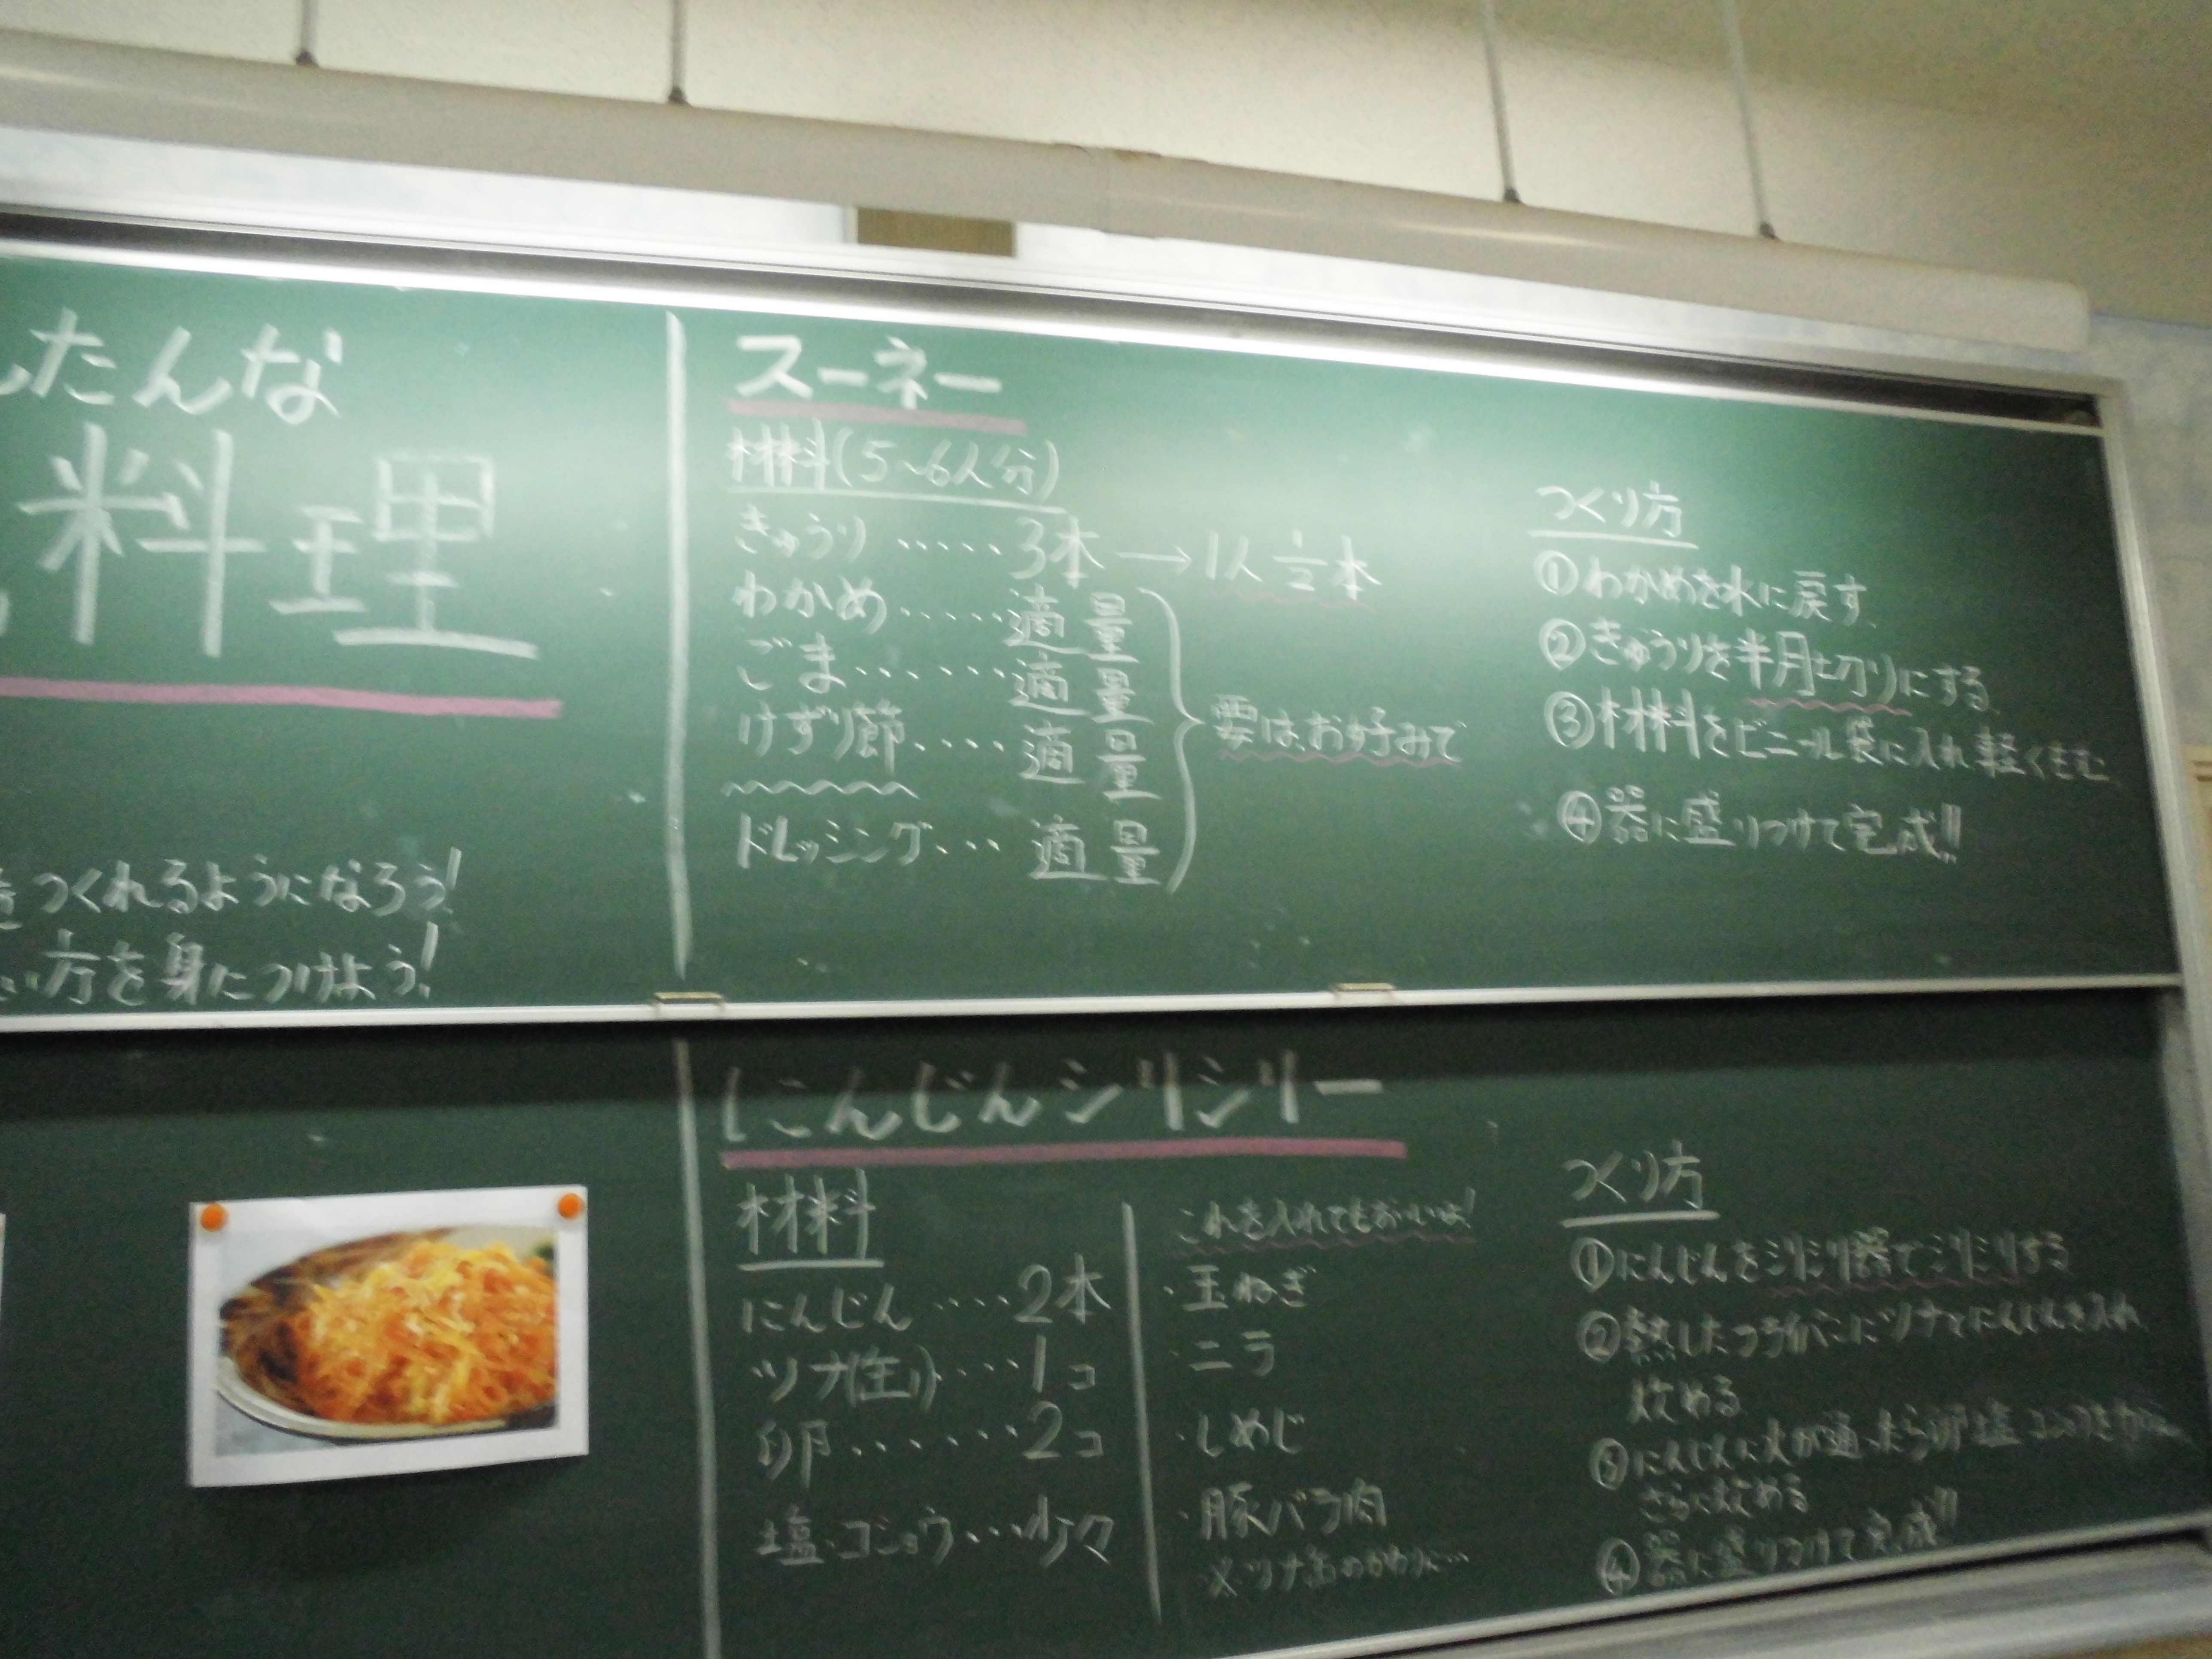 たんな
料理
をつくれるようになろう!
い方を身につけよう!
スーネー
材料(5~6人分)
きゅうり ‥‥‥ 3本 → 1人 1/2本
わかめ‥‥‥適量
ごま‥‥‥適量
けずり節‥‥適量
要は、お好みで
ドレッシング‥‥適量
つくり方
①わかめを水に戻す。
②きゅうりを半月切りにする。
③材料をビニール袋に入れ軽くもむ。
④器に盛りつけて完成!!
にんじんシリシリー
材料
にんじん ‥‥2本
ツナ(缶)‥‥1コ
卵‥‥‥2コ
塩・コショウ‥‥少々
これを入れてもおいしいよ!
・玉ねぎ
・ニラ
・しめじ
・豚バラ肉
※ツナ缶のかわりに‥‥
つくり方
①にんじんをシリシリ器でシリシリする
②熱したフライパンにツナとにんじんを入れ
炒める
③にんじんに火が通ったら卵、塩、コショウを
さらに炒める
④器に盛りつけて完成!!